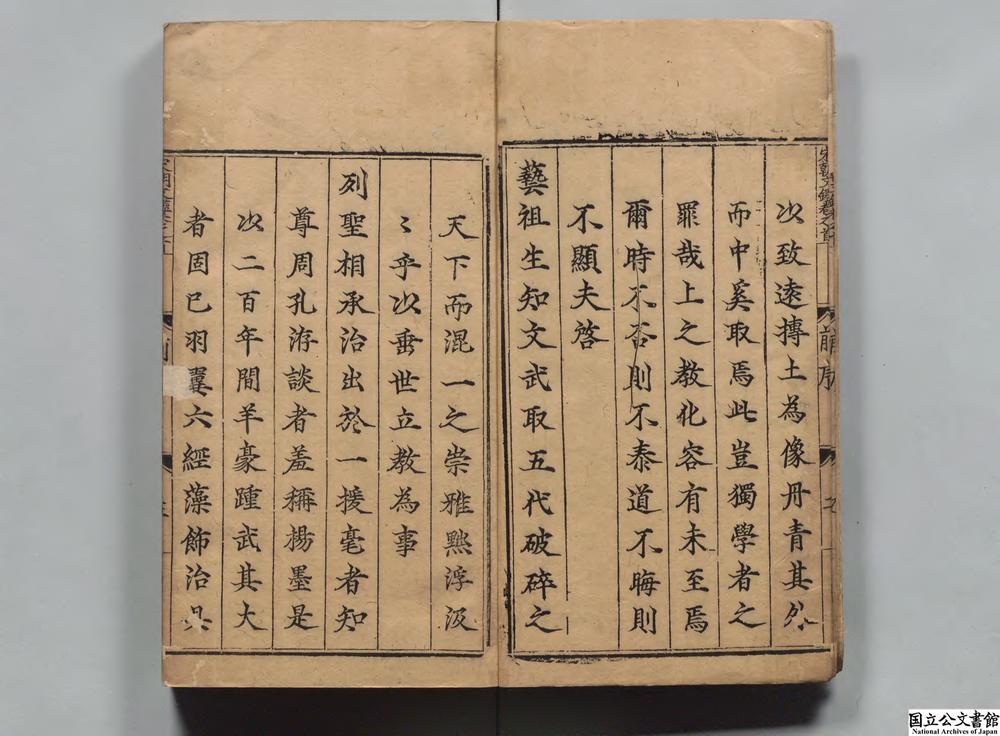 以致遠摶土為像丹青其外
而中奚取焉此豈獨學者之
罪哉上之教化容有未至焉
爾時不否則不泰道不晦則
不顯夫啓
藝祖生知文武取五代破碎之
天下而混一之崇雅黜浮汲
〻乎以垂世立教為事
列聖相承治出於一援毫者知
尊周孔游談者羞稱楊墨是
以二百年間羊豪踵武其大
者固已羽翼六經藻飾治具
前序
国立公文書館
National Archives of Japan